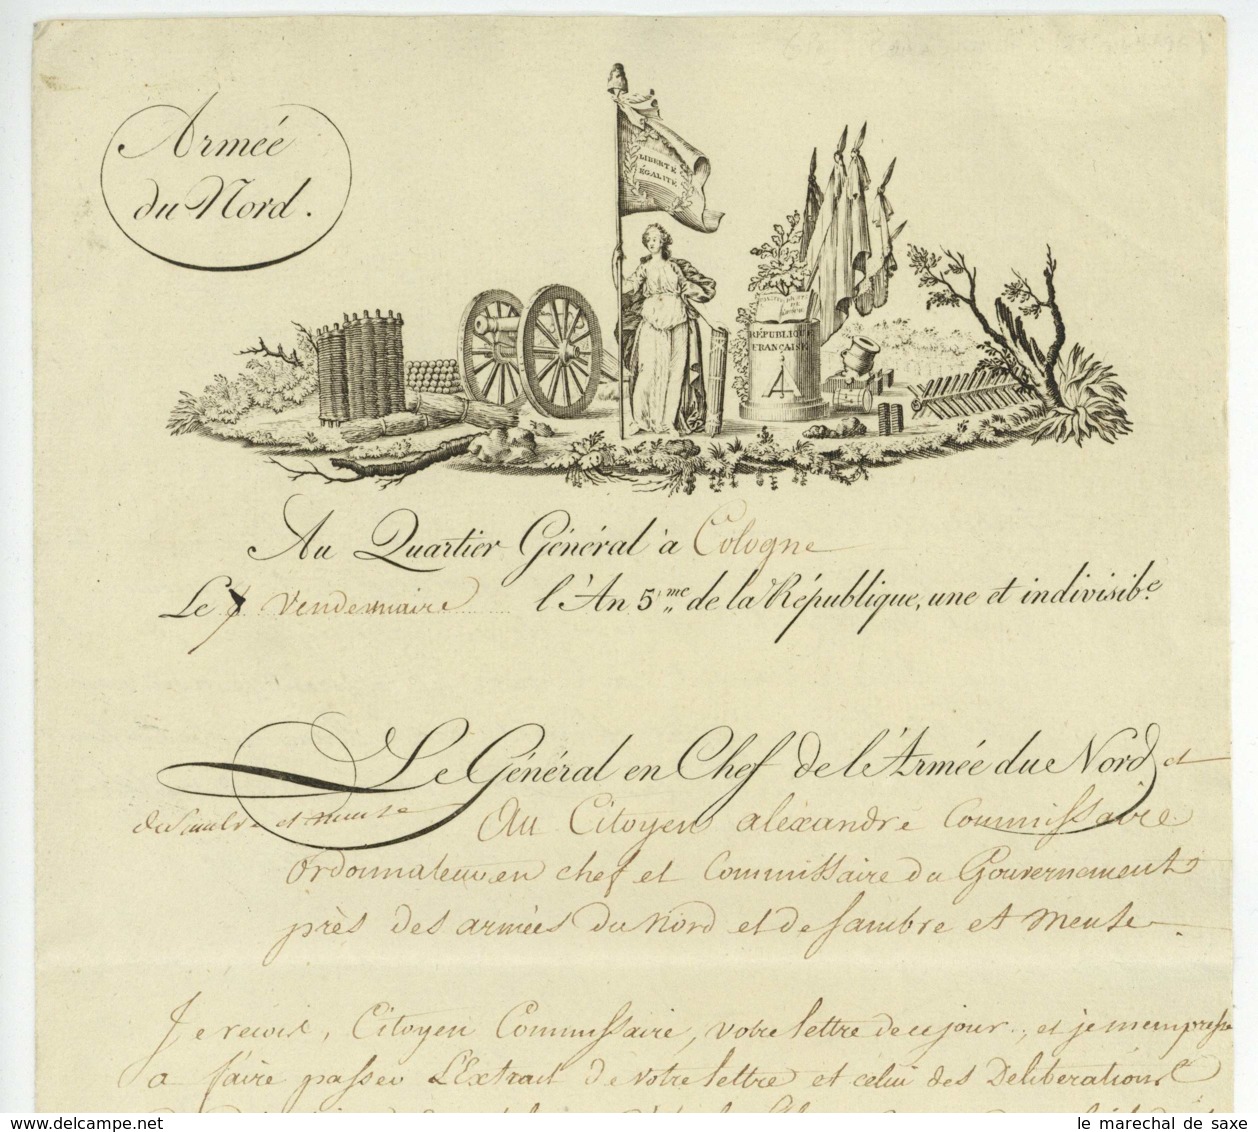 Armée
du Nord.
LIBERTÉ
ÉGALITÉ
RÉPUBLIQUE
FRANÇAISE
Au Quartier Général à Cologne
Le vendemiaire l'An 5.me de la République, une et indivisib.e
Le Général en Chef de l'Armée du Nord et
de Sambre et meuse Au Citoyen aléxandré Commissaire
ordonnateur en chef et Commissaire du Gouvernement
près des armées du Nord et de Sambre et Meuse.
Je reçois, Citoyen Commissaire, votre lettre de ce jour, et je m'empresse
a faire passer L'Extrait de votre lettre et celui des Deliberations
le marechal de saxe